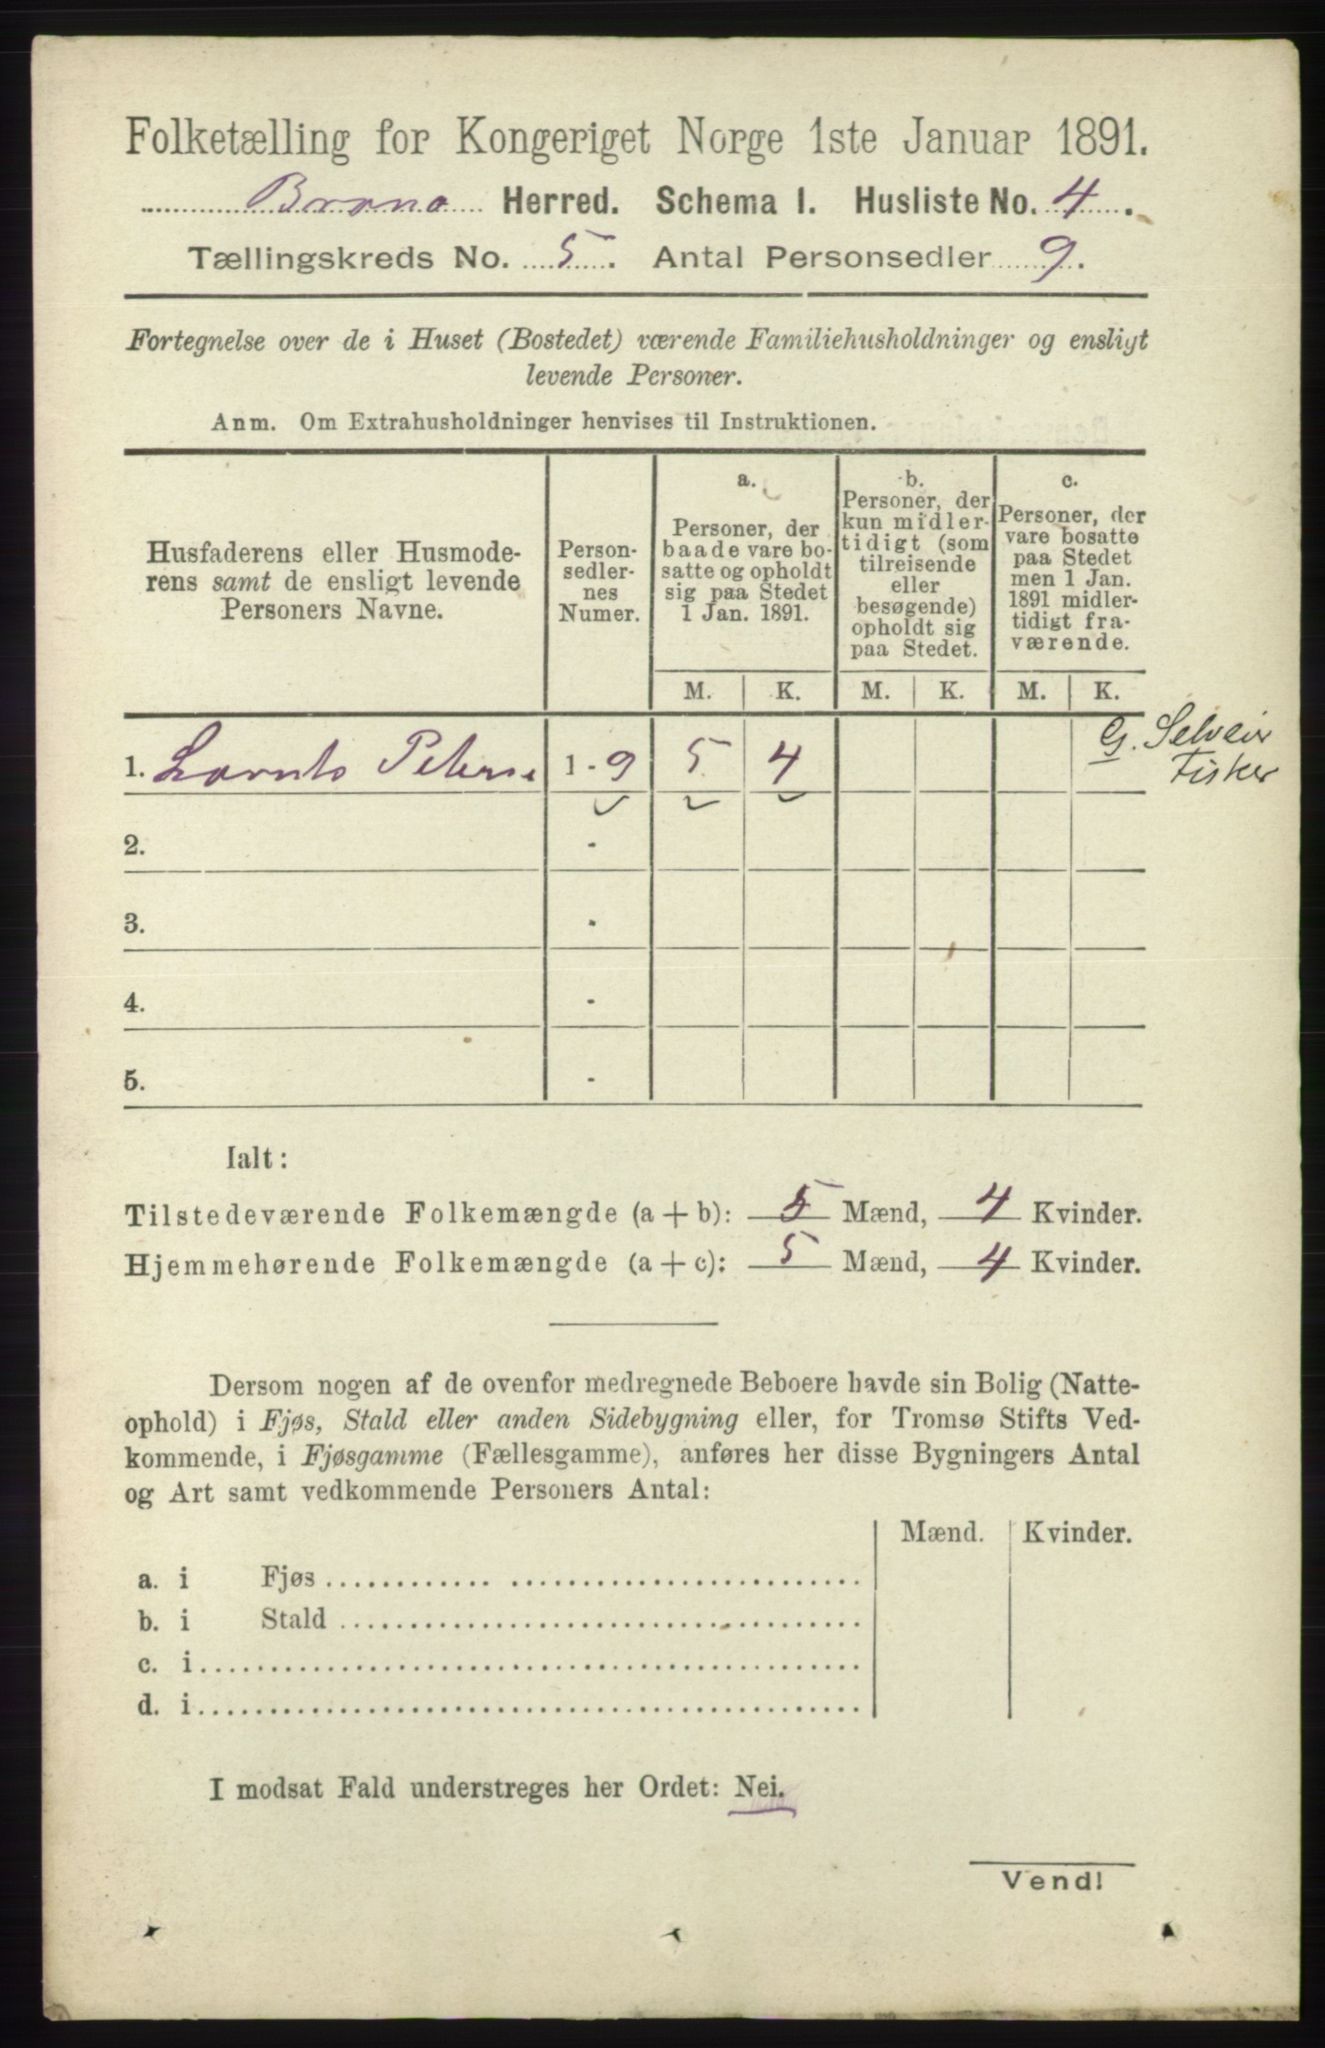 Folketælling for Kongeriget Norge 1ste Januar 1891.
Brønø Herred. Schema I. Husliste No. 4.
Tællingskreds No. 5. Antal Personsedler 9.
Fortegnelse over de i Huset (Bostedet) værende Familiehusholdninger og ensligt
levende Personer.
Anm. Om Extrahusholdninger henvises til Instruktionen.
Husfaderens eller Husmode-
rens samt de ensligt levende
Personers Navne.
Person-
sedler-
nes
Numer.
a.
Personer, der
baade vare bo-
satte og opholdt
sig paa Stedet
1 Jan. 1891.
b.
Personer, der
kun midler-
tidigt (som
tilreisende
eller
besøgende)
opholdt sig
paa Stedet.
c.
Personer, der
vare bosatte
paa Stedet
men 1 Jan.
1891 midler-
tidigt fra-
værende.
M. K. M. K. M. K.
1. Peters 1 - 9 5 4
G. Selveier
Fisker
2. -
3. -
4. -
5. -
Ialt:
Tilstedeværende Folkemængde (a + b): 5 Mænd, 4 Kvinder.
Hjemmehørende Folkemængde (a + c): 5 Mænd, 4 Kvinder.
Dersom nogen af de ovenfor medregnede Beboere havde sin Bolig (Natte-
ophold) i Fjøs, Stald eller anden Sidebygning eller, for Tromsø Stifts Ved-
kommende, i Fjøsgamme (Fællesgamme), anføres her disse Bygningers Antal
og Art samt vedkommende Personers Antal:
Mænd. Kvinder.
a. i Fjøs
b. i Stald
c. i
d. i
I modsat Fald understreges her Ordet: Nei.
Vend!